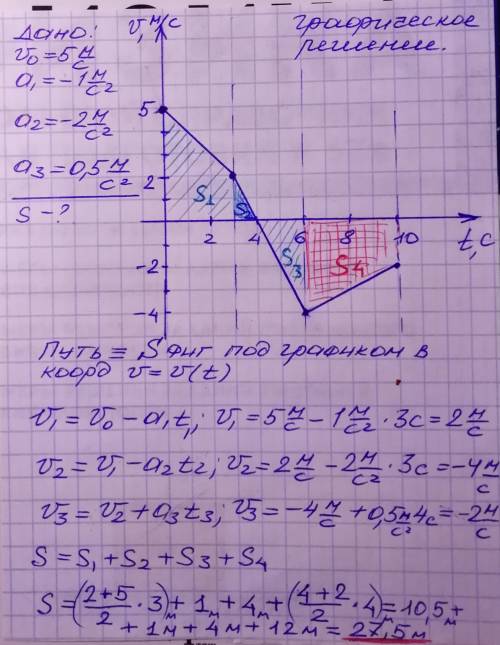 Дано:
v₀=5 м/с
a₁=-1 м/с²
a₂=-2 м/с²
a₃=0,5 м/с²
S-?
графическое
решение.
v, м/с
5
2
-2
-4
2
4
6
8
10
t, с
S₁
S₂
S₃
S₄
Путь ≡ Sфиг под графиком в
коорд v=v(t)
v₁=v₀-a₁t₁; v₁=5 м/с - 1 м/с² · 3с = 2 м/с
v₂=v₁-a₂t₂; v₂=2 м/с - 2 м/с² · 3с = -4 м/с
v₃=v₂+a₃t₃; v₃=-4 м/с + 0,5 м/с² 4с = -2 м/с
S=S₁+S₂+S₃+S₄
S=(2+5/2 · 3)м + 1м + 4м + (4+2/2 · 4)м = 10,5м +
+ 1м + 4м + 12м = 27,5м